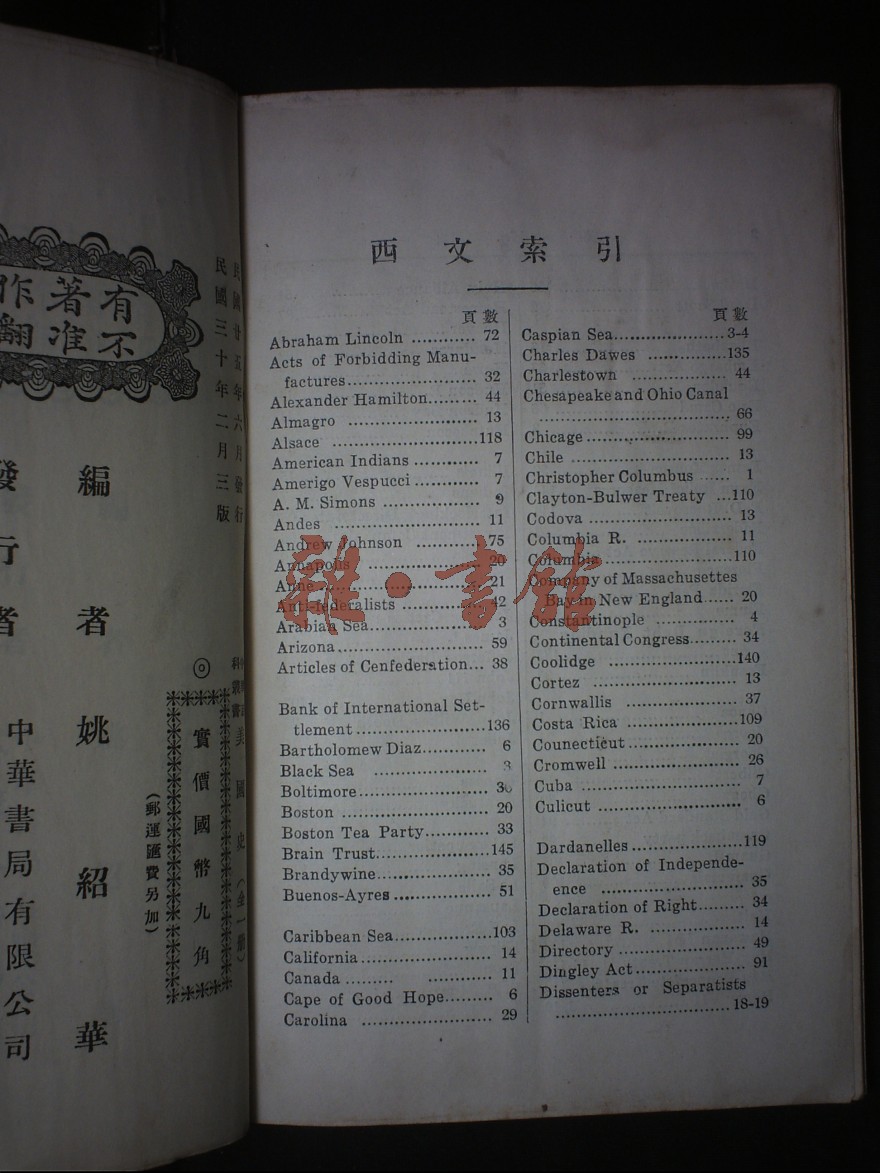 有不
著准
作翻
民國廿五年六月發行
民國三十年二月三版
美國史（全一冊）
◎實價國幣九角
（郵運匯費另加）
編者姚紹華
發行者中華書局有限公司
西文索引
頁數
Abraham Lincoln ............ 72
Acts of Forbidding Manu-
factures....................... 32
Alexander Hamilton......... 44
Almagro ....................... 13
Alsace .........................118
American Indians ............ 7
Amerigo Vespucci ............ 7
A. M. Simons ................. 9
Andes ......................... 11
Andrew Johnson ............75
Annapolis .................... 20
Anne........................... 21
Anti-federalists ............. 42
Arabian Sea................... 3
Arizona........................ 59
Articles of Cenfederation... 38
Bank of International Set-
tlement.......................136
Bartholomew Diaz............ 6
Black Sea .................... 3
Boltimore..................... 30
Boston ........................ 20
Boston Tea Party............ 33
Brain Trust...................145
Brandywine................... 35
Buenos-Ayres................. 51
Caribbean Sea.................103
California..................... 14
Canada ......... ............ 11
Cape of Good Hope......... 6
Carolina ...................... 29
頁數
Caspian Sea....................3-4
Charles Dawes ..............135
Charlestown ................. 44
Chesapeake and Ohio Canal
................................. 66
Chicage........................ 99
Chile .......................... 13
Christopher Columbus ...... 1
Clayton-Bulwer Treaty ...110
Codova ........................ 13
Columbia R. .................. 11
Columbia......................110
Company of Massachusettes
Bay in New England...... 20
Constantinople ............... 4
Continental Congress........ 34
Coolidge ......................140
Cortez ........................ 13
Cornwallis .................... 37
Costa Rica ...................109
Counecticut................... 20
Cromwell ..................... 26
Cuba .......................... 7
Culicut ....................... 6
Dardanelles...................119
Declaration of Independe-
ence .......................... 35
Declaration of Right......... 34
Delaware R. .................. 14
Directory ..................... 49
Dingley Act................... 91
Dissenters or Separatists
...............................18-19
雜·書館